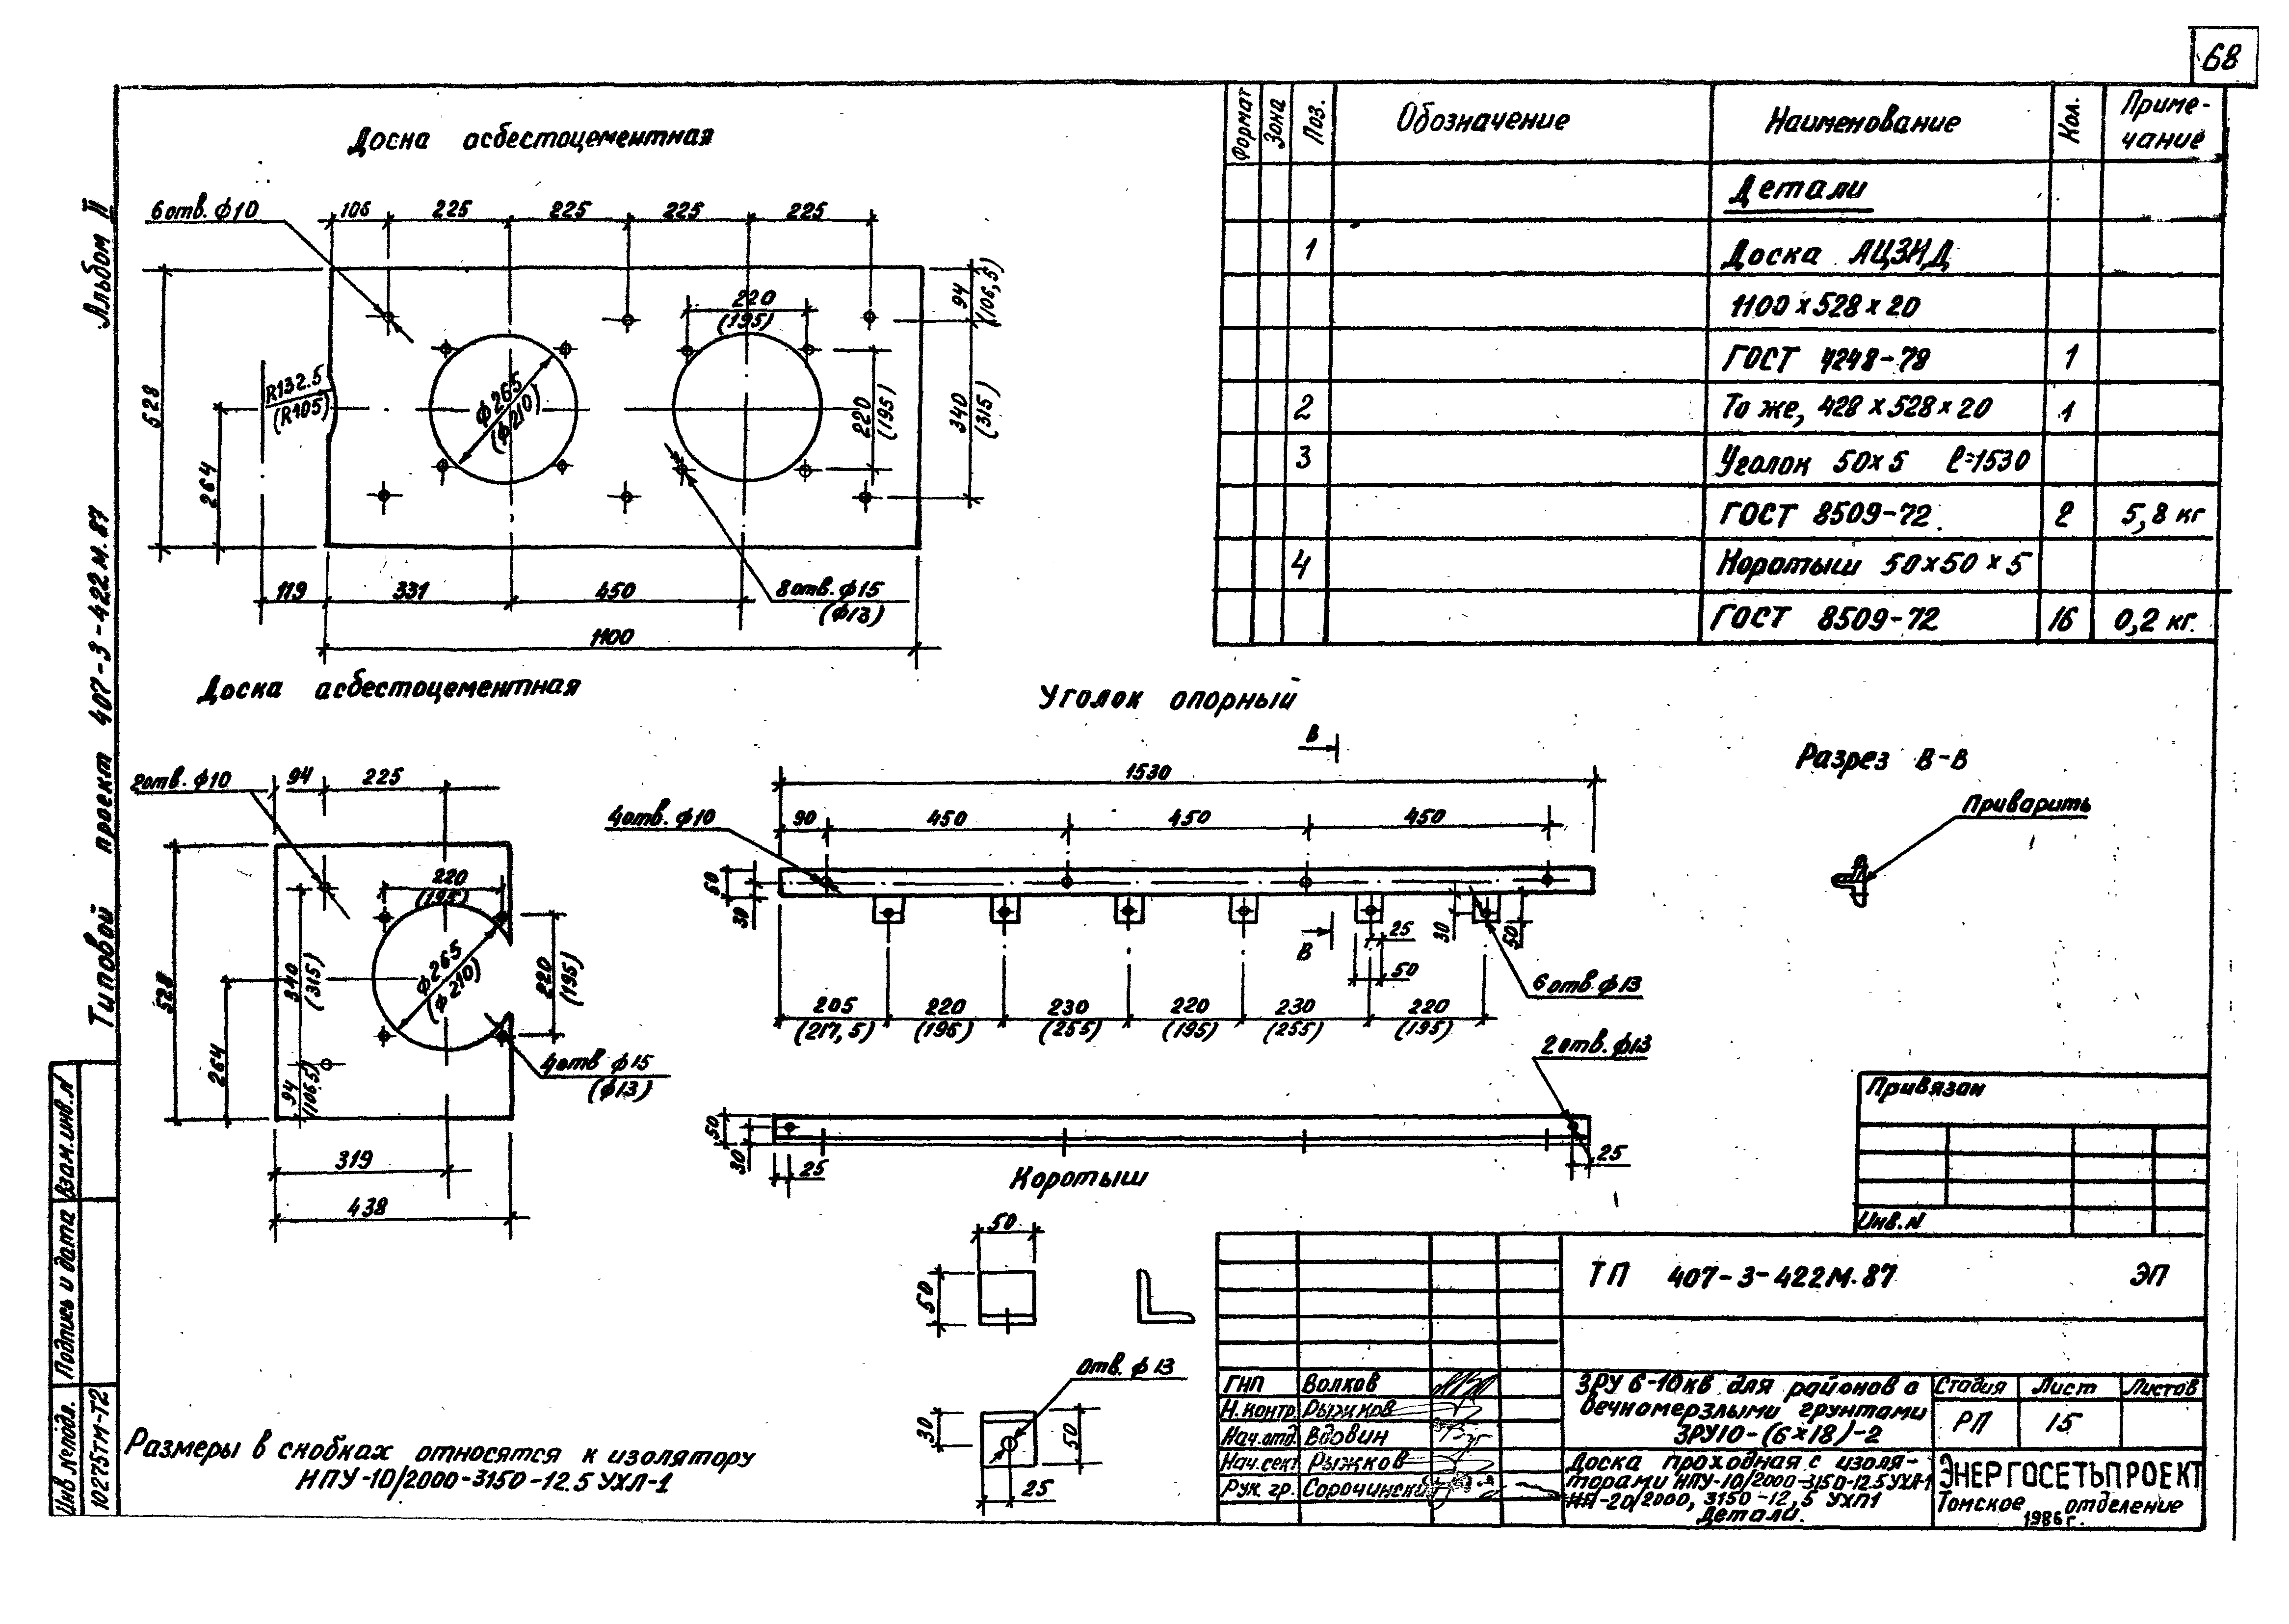 68
Альбом II
Типовой проект 407-3-422м.87
Доска асбестоцементная
6 отв. ф10
106 225 225 225 225
528
264
R132.5
(R105)
ф265
(ф210)
220
(195)
220
(195)
94
(106,5)
340
(315)
119 331 450
8 отв. ф15
(ф13)
1100
Формат Зона Поз. Обозначение Наименование Кол. Приме-
чание
Детали
1 Доска АЦЭИД
1100 х 528 х 20
ГОСТ 4248-78 1
2 То же, 428 х 528 х 20 1
3 Уголок 50х5 ℓ=1530
ГОСТ 8509-72 2 5,8 кг
4 Коротыш 50х50х5
ГОСТ 8509-72 16 0,2 кг.
Доска асбестоцементная
2 отв. ф10
94 225
220
(195)
528
264
340
(315)
94
(106,5)
ф265
(ф210)
220
(195)
4 отв ф15
(ф13)
319
438
Уголок опорный
В
1530
4 отв. ф10
90 450 450 450
30
В
25
50
30
50
6 отв. ф13
205 220 230 220 230 220
(217,5) (195) (255) (195) (255) (195)
2 отв. ф13
50
30
25
25
Разрез В-В
Приварить
Коротыш
50
50
Отв. ф13
30
50
25
Размеры в скобках относятся к изолятору
ИПУ-10/2000-3150-12.5 УХЛ-1
Взам.инв.N
Подпись и дата
Инв N подл.
10275тм-т2
Привязан
Инв.N
ТП 407-3-422М.87 ЭП
ГИП Волков
Н. контр. Рыжков
Нач.отд. Вдовин
Нач.сект. Рыжков
Рук. гр. Сорочинский
ЗРУ 6-10кв для районов с
вечномерзлыми грунтами
ЗРУ10-(6×18)-2
Стадия Лист Листов
РП 15
Доска проходная с изоля-
торами ИПУ-10/2000-3150-12.5 УХЛ-1
-20/2000, 3150-12,5 УХЛ1
Детали.
ЭНЕРГОСЕТЬПРОЕКТ
Томское отделение
1986г.